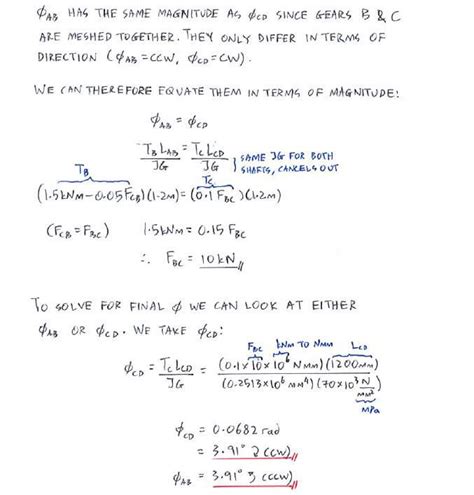 φAB HAS THE SAME MAGNITUDE AS φCD SINCE GEARS B & C
ARE MESHED TOGETHER. THEY ONLY DIFFER IN TERMS OF
DIRECTION (φAB = CCW, φCD = CW).
WE CAN THEREFORE EQUATE THEM IN TERMS OF MAGNITUDE:
φAB = φCD
TB LAB / JG = TC LCD / JG } SAME JG FOR BOTH SHAFTS, CANCELS OUT
TB TC
(1.5kNm - 0.05FCB)(1.2m) = (0.1 FBC)(1.2m)
(FCB = FBC) 1.5kNm = 0.15 FBC
∴ FBC = 10kN
TO SOLVE FOR FINAL φ WE CAN LOOK AT EITHER
φAB OR φCD. WE TAKE φCD:
FBC kNm TO Nmm LCD
φCD = TC LCD / JG = (0.1×10×10⁶ Nmm)(1200mm) / (0.2513×10⁶ mm⁴)(70×10³ N/mm²)
MPa
φCD = 0.0682 rad
= 3.91° (CCW)
φAB = 3.91° (CCW)